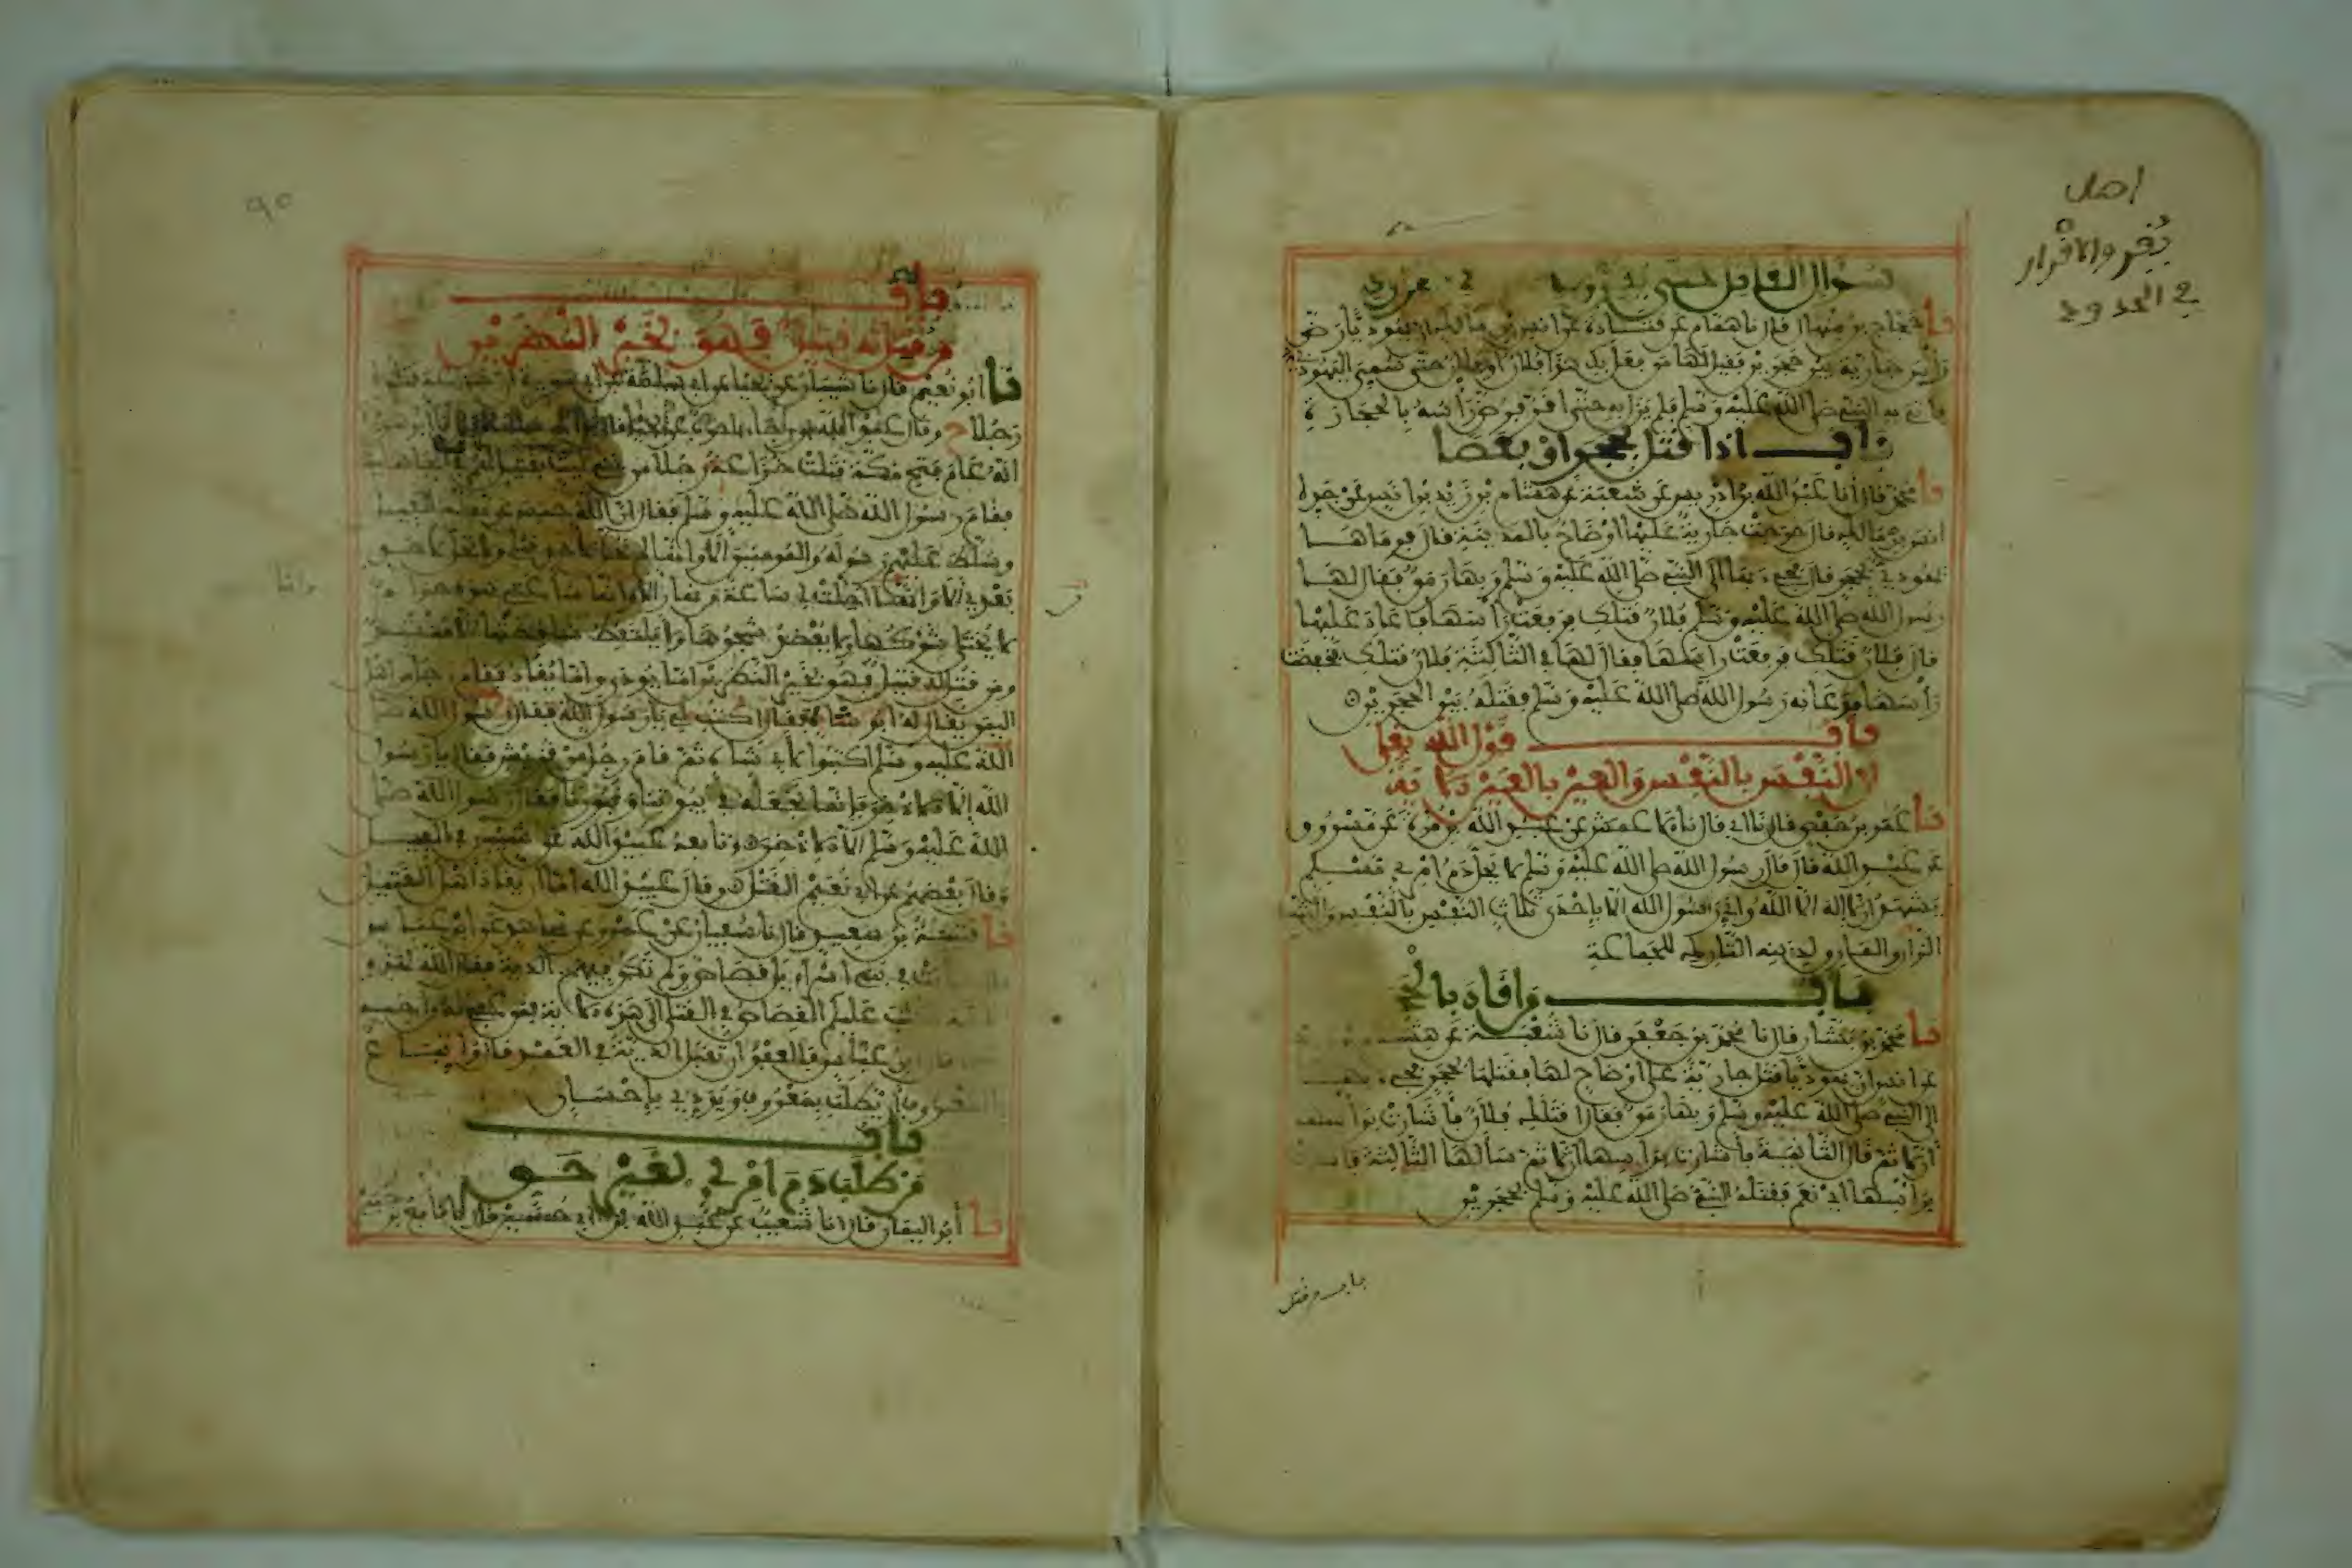 اصل
يُقِر والاقرار
في الحدود
سؤال القاتل حتى يقر في الحدود
نا حجاج بن منهال قال نا همام عن قتادة عن انس بن مالك ان يهوديا رض
رأس جارية بين حجرين فقيل لها من فعل بك هذا افلان او فلان حتى سمي اليهودي
فاتي به النبي صلى الله عليه وسلم فلم يزل به حتى اقر فرض رأسه بالحجارة
باب اذا قتل بحجر او بعصا
نا محمد قال أنا عبد الله بن ادريس عن شعبة عن هشام بن زيد بن انس عن جده
انس بن مالك قال خرجت جارية عليها اوضاح بالمدينة قال فرماها
يهودي بحجر قال فجيء بها الى النبي صلى الله عليه وسلم وبها رمق فقال لها
رسول الله صلى الله عليه وسلم فلان قتلك فرفعت رأسها فأعاد عليها
قال فلان قتلك فرفعت رأسها فقال لها في الثالثة فلان قتلك فخفضت
رأسها فدعا به رسول الله صلى الله عليه وسلم فقتله بين الحجرين
باب قول الله تعلى
ان النفس بالنفس والعين بالعين الآية
نا عمر بن حفص قال نا ابي قال نا الاعمش عن عبد الله بن مرة عن مسروق
عن عبد الله قال قال رسول الله صلى الله عليه وسلم لا يحل دم امرئ مسلم
يشهد ان لا إله الا الله واني رسول الله الا بإحدى ثلاث النفس بالنفس والثيب
الزاني والمارق لدينه التارك للجماعة
باب من اقاد بالحجر
نا محمد بن بشار قال نا محمد بن جعفر قال نا شعبة عن هشام بن زيد
عن انس ان يهوديا قتل جارية على اوضاح لها فقتلها بحجر فجيء بها
الى النبي صلى الله عليه وسلم وبها رمق فقال اقتلك فلان فأشارت برأسها
ان لا ثم قال الثانية فأشارت برأسها ان لا ثم سألها الثالثة فأشارت
برأسها اي نعم فقتله النبي صلى الله عليه وسلم بحجرين
باب من قتل
٩٥
باب
من قتل له قتيل فهو بخير النظرين
نا ابو نعيم قال نا شيبان عن يحيى عن ابي سلمة عن ابي هريرة ان خزاعة قتلوا
رجلا ح وقال عبد الله بن رجاء نا حرب عن يحيى
انه عام فتح مكة قتلت خزاعة رجلا من بني ليث بقتيل لهم في الجاهلية
فقام رسول الله صلى الله عليه وسلم فقال ان الله حبس عن مكة الفيل
وسلط عليهم رسوله والمؤمنين الا وانها لم تحل لاحد قبلي ولا تحل لاحد
بعدي الا وانها احلت لي ساعة من نهار الا وانها ساعتي هذه حرام
لا يختلى شوكها ولا يعضد شجرها ولا يلتقط ساقطتها الا منشد
ومن قتل له قتيل فهو بخير النظرين اما يودى واما يقاد فقام رجل من اهل
اليمن يقال له ابو شاه فقال اكتب لي يا رسول الله فقال رسول الله صلى
الله عليه وسلم اكتبوا لابي شاه ثم قام رجل من قريش فقال يا رسول
الله إلا الاذخر فإنما نجعله في بيوتنا وقبورنا فقال رسول الله صلى
الله عليه وسلم الا الاذخر وتابعه عبيد الله عن شيبان في الفيل
وقال بعضهم عن ابي نعيم القتل وقال عبيد الله اما ان يقاد اهل القتيل
نا قتيبة بن سعيد قال نا سفيان عن عمرو عن مجاهد عن ابن عباس
كانت في بني اسراءيل قصاص ولم تكن فيهم الدية فقال الله لهذه
كتب عليكم القصاص في القتلى الى هذه الآية فمن عفي له من أخيه
قال ابن عباس فالعفو ان تقبل الدية في العمد قال فاتباع
بالمعروف ان يطلب بمعروف ويؤدي بإحسان
باب
من طلب دم امرئ بغير حق
نا أبو اليمان قال انا شعيب عن عبد الله بن ابي حسين قال نا نافع بن جبير